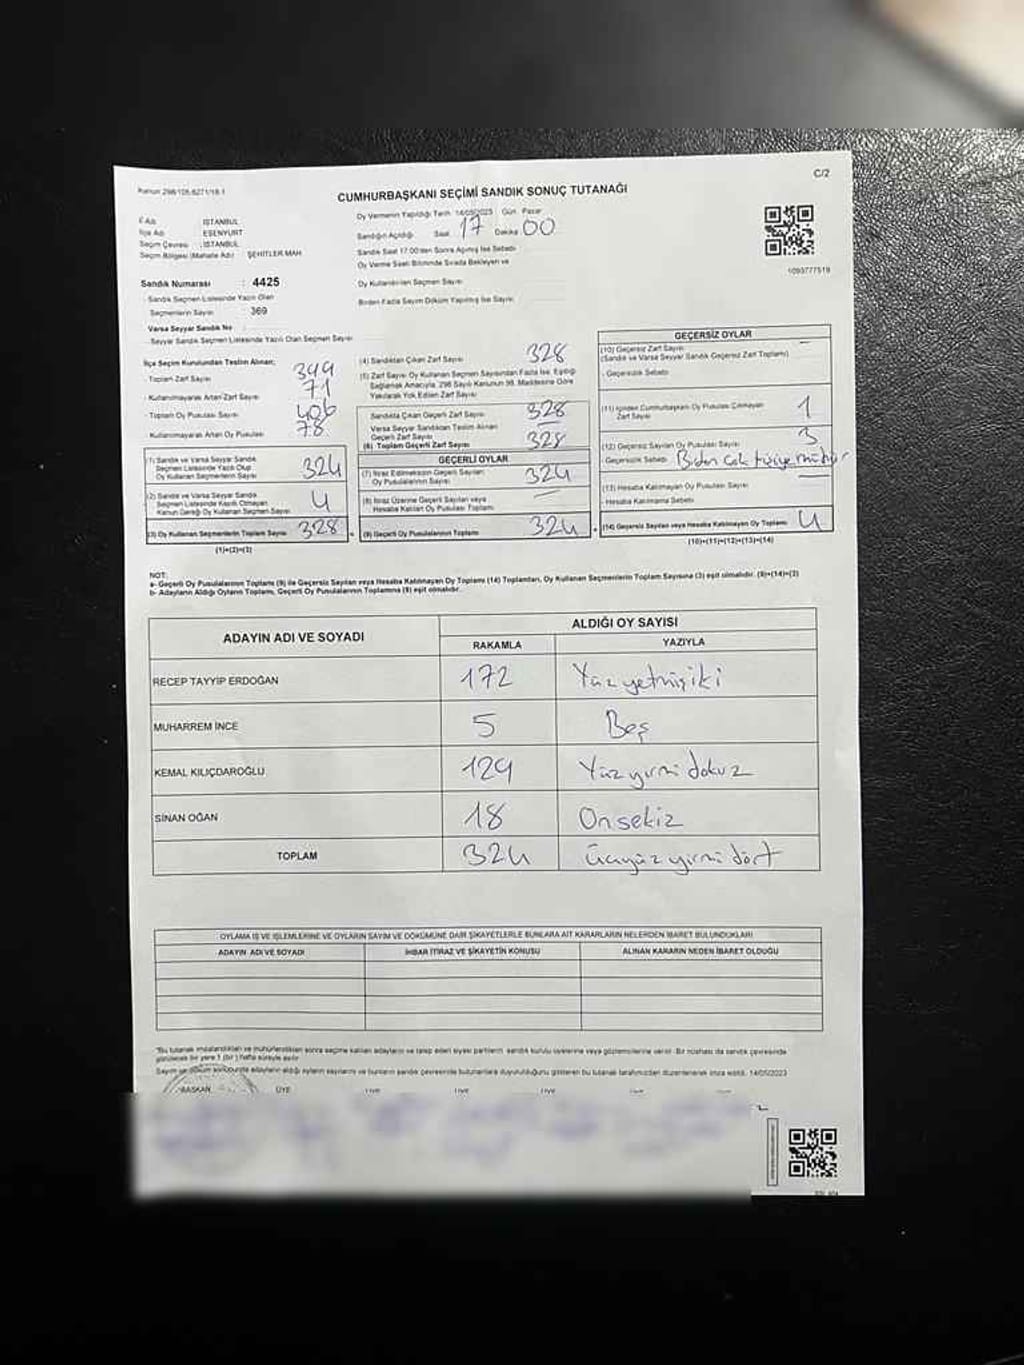 Kanun 298/105,6271/18.1
C/2
CUMHURBAŞKANI SEÇİMİ SANDIK SONUÇ TUTANAĞI
İl Adı : İSTANBUL
İlçe Adı : ESENYURT
Seçim Çevresi : İSTANBUL
Seçim Bölgesi (Mahalle Adı) : ŞEHİTLER MAH.
Sandık Numarası : 4425
Sandık Seçmen Listesinde Yazılı Olan
Seçmenlerin Sayısı : 369
Varsa Seyyar Sandık No
Seyyar Sandık Seçmen Listesinde Yazılı Olan Seçmen Sayısı
Oy Vermenin Yapıldığı Tarih 14/05/2023 Gün Pazar
Sandığın Açıldığı Saat 17 Dakika 00
Sandık Saat 17:00'den Sonra Açılmış İse Sebebi
Oy Verme Saati Bitiminde Sırada Bekleyen ve
Oy Kullandırılan Seçmen Sayısı
Birden Fazla Sayım Döküm Yapılmış İse Sayısı
1093777519
İlçe Seçim Kurulundan Teslim Alınan;
Toplam Zarf Sayısı
Kullanılmayarak Artan Zarf Sayısı 71
Toplam Oy Pusulası Sayısı 406
Kullanılmayarak Artan Oy Pusulası 78
(1) Sandık ve Varsa Seyyar Sandık
Seçmen Listesinde Yazılı Olup
Oy Kullanan Seçmenlerin Sayısı 324
(2) Sandık ve Varsa Seyyar Sandık
Seçmen Listesinde Kayıtlı Olmayan
Kanun Gereği Oy Kullanan Seçmen Sayısı 4
(3) Oy Kullanan Seçmenlerin Toplam Sayısı 328
(1)+(2)=(3)
(4) Sandıktan Çıkan Zarf Sayısı 328
(5) Zarf Sayısı Oy Kullanan Seçmen Sayısından Fazla İse, Eşitliği
Sağlamak Amacıyla, 298 Sayılı Kanunun 98. Maddesine Göre
Yakılarak Yok Edilen Zarf Sayısı
Sandıkta Çıkan Geçerli Zarf Sayısı 328
Varsa Seyyar Sandıktan Teslim Alınan
Geçerli Zarf Sayısı
(6) Toplam Geçerli Zarf Sayısı 328
GEÇERLİ OYLAR
(7) İtiraz Edilmeksizin Geçerli Sayılan
Oy Pusulalarının Sayısı 324
(8) İtiraz Üzerine Geçerli Sayılan veya
Hesaba Katılan Oy Pusulası Toplamı —
(9) Geçerli Oy Pusulalarının Toplamı 324
GEÇERSİZ OYLAR
(10) Geçersiz Zarf Sayısı —
(Sandık ve Varsa Seyyar Sandık Geçersiz Zarf Toplamı)
Geçersizlik Sebebi
(11) İçinden Cumhurbaşkanı Oy Pusulası Çıkmayan
Zarf Sayısı 1
(12) Geçersiz Sayılan Oy Pusulası Sayısı 3
Geçersizlik Sebebi Birden çok kişiye mühür
(13) Hesaba Katılmayan Oy Pusulası Sayısı —
Hesaba Katılmama Sebebi
(14) Geçersiz Sayılan veya Hesaba Katılmayan Oy Toplamı 4
(10)+(11)+(12)+(13)=(14)
NOT:
a- Geçerli Oy Pusulalarının Toplamı (9) ile Geçersiz Sayılan veya Hesaba Katılmayan Oy Toplamı (14) Toplamları, Oy Kullanan Seçmenlerin Toplam Sayısına (3) eşit olmalıdır. (9)+(14)=(3)
b- Adayların Aldığı Oyların Toplamı, Geçerli Oy Pusulalarının Toplamına (9) eşit olmalıdır.
ADAYIN ADI VE SOYADI
ALDIĞI OY SAYISI
RAKAMLA YAZIYLA
RECEP TAYYİP ERDOĞAN 172 Yüzyetmişiki
MUHARREM İNCE 5 Beş
KEMAL KILIÇDAROĞLU 129 Yüzyirmi dokuz
SİNAN OĞAN 18 Onsekiz
TOPLAM 324 Üçyüzyirmi dört
OYLAMA İŞ VE İŞLEMLERİNE VE OYLARIN SAYIM VE DÖKÜMÜNE DAİR ŞİKAYETLERLE BUNLARA AİT KARARLARIN NELERDEN İBARET BULUNDUKLARI
ADAYIN ADI VE SOYADI İHBAR İTİRAZ VE ŞİKAYETİN KONUSU ALINAN KARARIN NEDEN İBARET OLDUĞU
"Bu tutanak imzalandıktan ve mühürlendikten sonra seçime katılan adayların ve talep eden siyasi partilerin sandık kurulu üyelerine veya gözlemcilerine verilir. Bir nüshası da sandık çevresinde
görülecek bir yere 1 (bir) hafta süreyle asılır.
14/05/2023
BAŞKAN ÜYE ÜYE ÜYE ÜYE ÜYE